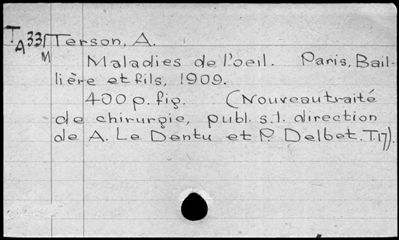 TA 331 M Terson, A.
Maladies de l'oeil. Paris, Bail-
lière et fils, 1909.
400 p. fig. (Nouveau traité
de chirurgie, publ. s.l. direction
de A. Le Dentu et P. Delbet. T.17).